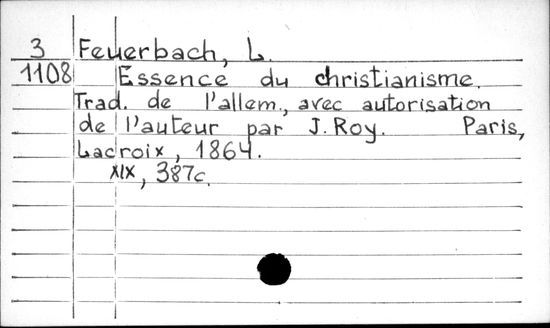 3 Feuerbach, L.
1108 Essence du christianisme.
Trad. de l'allem., avec autorisation
de l'auteur par J. Roy. Paris,
Lacroix, 1864.
XIX, 387c.